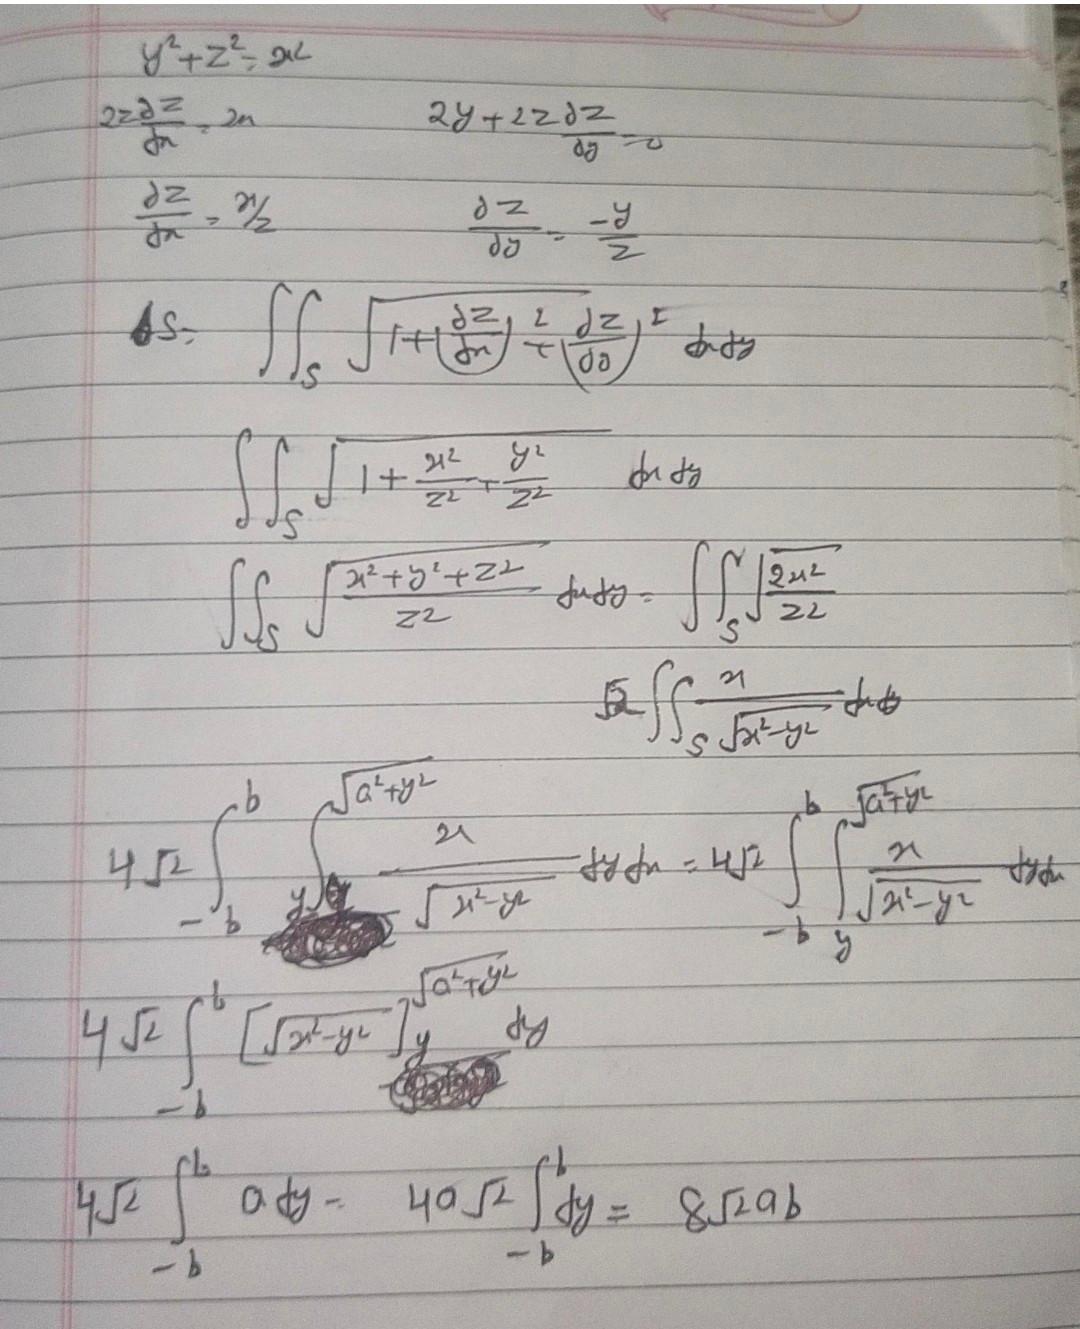 y² + z² = x²
2z ∂z/∂x = 2x    2y + 2z ∂z/∂y = 0
∂z/∂x = x/z    ∂z/∂y = -y/z
S = ∬_S √(1 + (∂z/∂x)² + (∂z/∂y)²) dx dy
∬_S √(1 + x²/z² + y²/z²) dx dy
∬_S √((x² + y² + z²)/z²) dx dy = ∬_S √(2x²/z²)
√2 ∬_S x/√(x² - y²) dx dy
4√2 ∫_{-b}^{b} ∫_{y}^{√(a² + y²)} x/√(x² - y²) dy dx = 4√2 ∫_{-b}^{b} ∫_{y}^{√(a² + y²)} x/√(x² - y²) dy dx
4√2 ∫_{-b}^{b} [√(x² - y²)]_{y}^{√(a² + y²)} dy
4√2 ∫_{-b}^{b} a dy = 4a√2 ∫_{-b}^{b} dy = 8√2ab